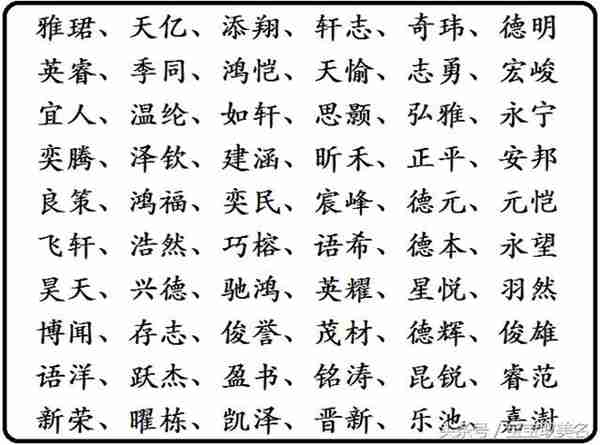 雅珺、天亿、添翔、轩志、奇玮、德明
英睿、季同、鸿恺、天愉、志勇、宏峻
宜人、温纶、如轩、思颢、弘雅、永宁
奕腾、泽钦、建涵、昕禾、正平、安邦
良策、鸿福、奕民、宸峰、德元、元恺
飞轩、浩然、巧榕、语希、德本、永望
昊天、兴德、驰鸿、英耀、星悦、羽然
博闻、存志、俊誉、茂材、德辉、俊雄
语洋、跃杰、盈书、铭涛、昆锐、睿范
新荣、曜栋、凯泽、晋新、乐池、嘉澍
头条号